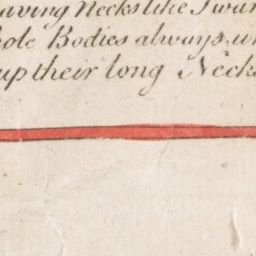 aving Necks like Swan
ole Bodies always un
up their long Necks